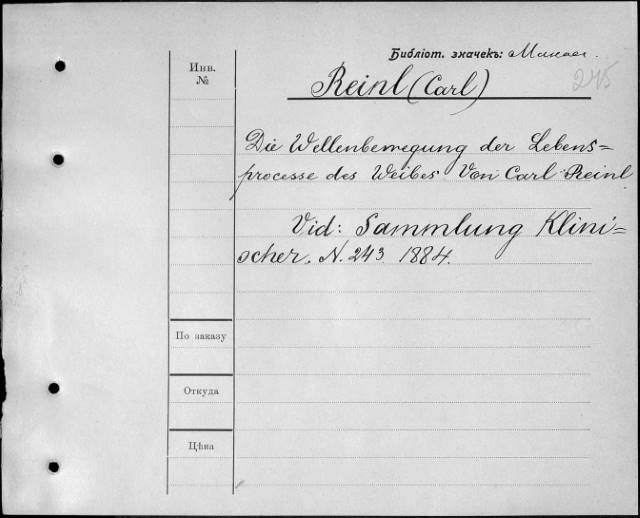 Библіот. значекъ:
Инв.
№
Reinl (Carl)
245
Die Wellenbewegung der Lebens=
processe des Weibes Von Carl Reinl
Vid: Sammlung Klini=
scher. N. 243. 1884.
По заказу
Откуда
Цѣна